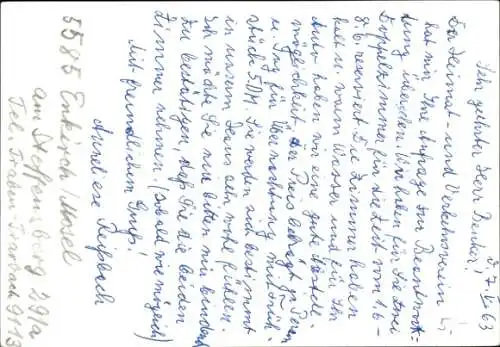 2.7.63
Sehr geehrter Herr Becker!
Der Heimat- und Verkehrsverein
hat mir Ihre Anfrage zur Beantwor-
tung übergeben. Wir haben für Sie zwei
Doppelzimmer für die Zeit vom 16 –
8.6. reserviert. Die Zimmer haben
kalt u. warm Wasser und für Ihr
Auto haben wir eine gute
möglichkeit. Der Preis beträgt p. Person
u. Tag für Übernachtung mit
5 DM. Sie werden sich bestimmt
in unserm Haus sehr wohl fühlen.
Ich möchte Sie nun bitten mir
zu bestätigen, daß Sie die beiden
Zimmer nehmen (sobald wie möglich)
Mit freundlichem Gruß!
Anneliese
5585 Enkirch/Mosel
am Steffensberg 291a
Tel. Traben Trarbach 9113